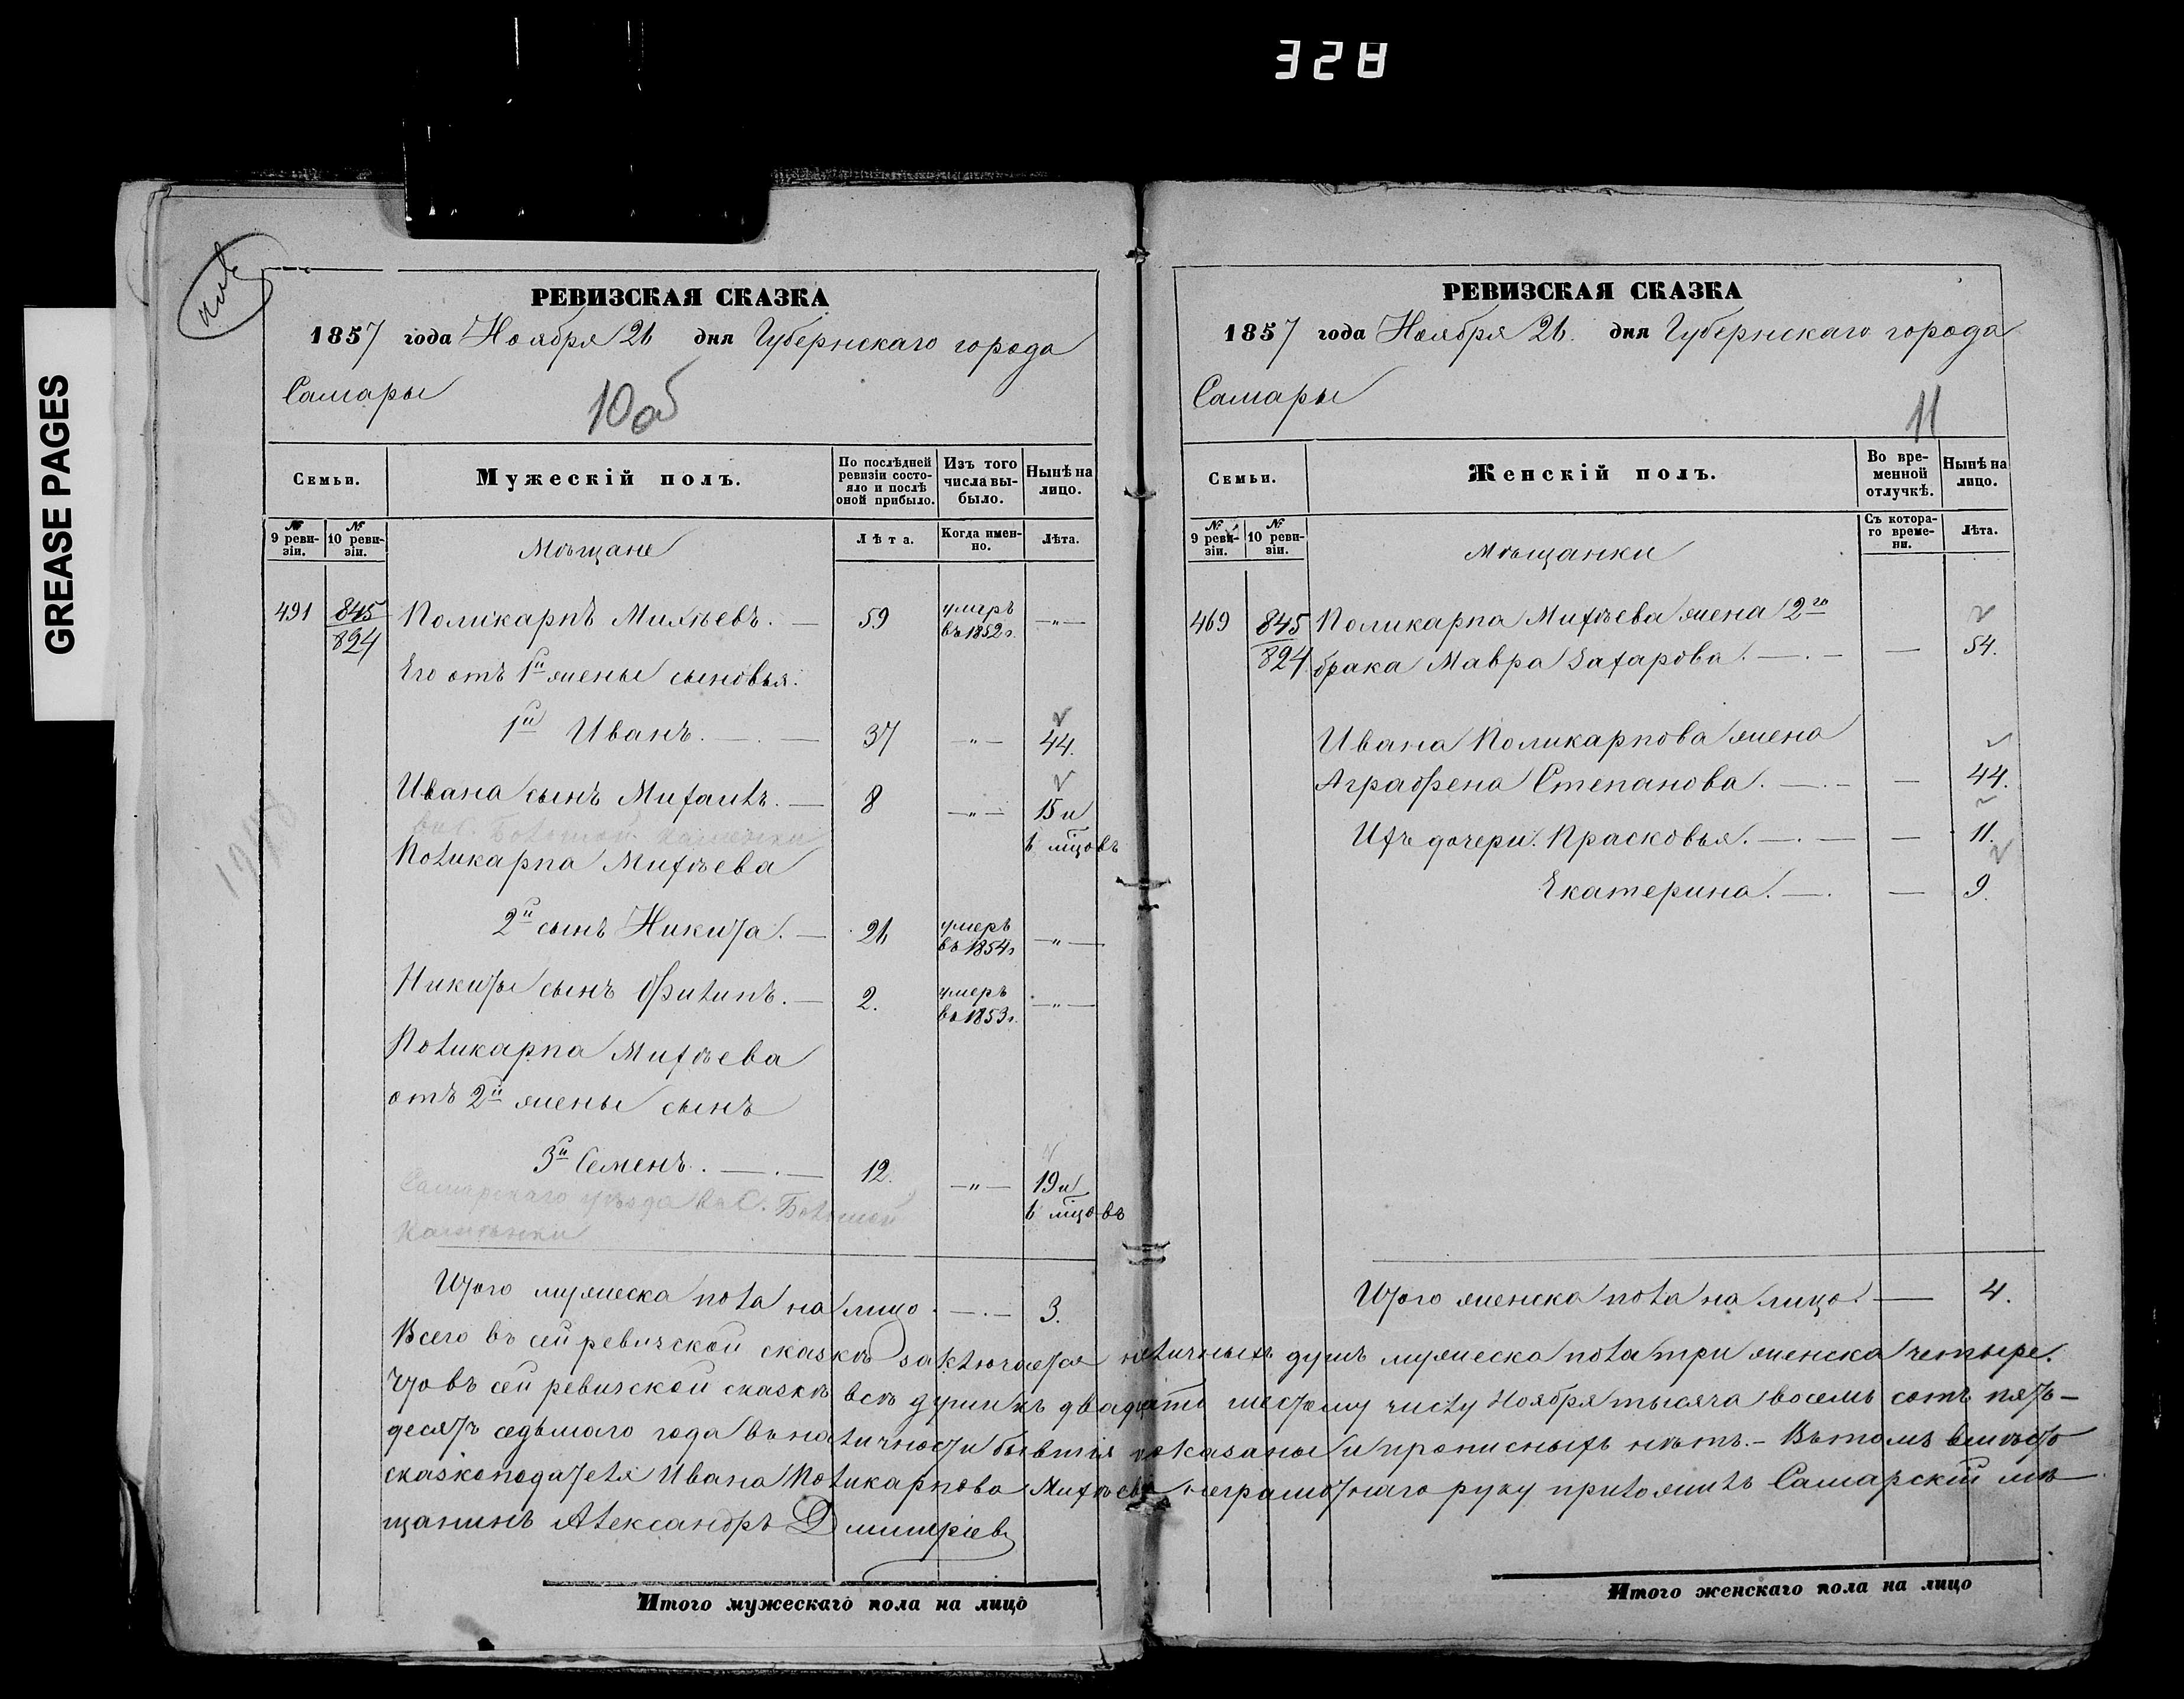 328
GREASE PAGES
РЕВИЗСКАЯ СКАЗКА
1857 года Ноября 26 дня Губернскаго города
Самары
10 об
Семьи.
Мужескій полъ.
По послѣдней ревизіи состояло и послѣ оной прибыло.
Изъ того числа выбыло.
Нынѣ на лицо.
№ 9 ревизіи.
№ 10 ревизіи.
Мѣщане
Лѣта.
Когда именно.
Лѣта.
491 845/824 Поликарпъ Михѣевъ. 59 умеръ въ 1852 г. —„—
Его отъ 1й жены сыновья.
1й Иванъ. 37 —„— 44.
Ивана сынъ Михаилъ. 8 —„— 15 и
6 мцовъ
Поликарпа Михѣева
2й сынъ Никита. 26 умеръ въ 1854 г —„—
Никиты сынъ Филипъ. 2. умеръ въ 1853 г. —„—
Поликарпа Михѣева
отъ 2й жены сынъ
3й Семенъ. 12. —„— 19 и
6 мцовъ
Самарскаго уѣзда въ С. Большой
Каменки
Итого мужеска пола на лицо 3.
РЕВИЗСКАЯ СКАЗКА
1857 года Ноября 26. дня Губернскаго города
Самары
11
Семьи.
Женскій полъ.
Во временной отлучкѣ.
Нынѣ на лицо.
№ 9 ревизіи.
№ 10 ревизіи.
Мѣщанки
Съ котораго времени.
Лѣта.
469 845/824 Поликарпа Михѣева жена 2го
брака Мавра Захарова. — 54.
Ивана Поликарпова жена
Аграфена Степанова. — 44.
Ихъ дочери. Прасковья. — 11.
Екатерина. — 9.
Итого женска пола на лицо. — 4.
Всего въ сей ревизской сказкѣ заключается наличныхъ душъ мужеска пола три женска четыре.
Что въ сей ревизской сказкѣ всѣ души къ двадцать шестому числу Ноября тысяча восемь сотъ пять-
десятъ седьмаго года въ наличности бывшія показаны и прописныхъ нѣтъ.- Въ томъ вмѣсто
сказкоподателя Ивана Поликарпова Михѣева неграмотнаго руку приложилъ Самарскій мѣ
щанинъ Александръ Дмитріевъ
Итого мужескаго пола на лицо
Итого женскаго пола на лицо